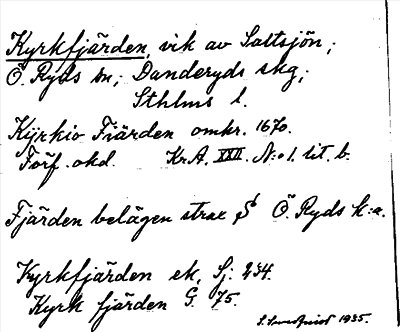 Kyrkfjärden, vik av Saltsjön;
Ö. Ryds sn; Danderyds skg;
Sthlms l.
Kÿrkio Fiärden omkr. 1670.
Förf. okd. Kr.A. XXII. N:o 1. lit. b.
Fjärden belägen strax S Ö. Ryds k:a.
Kyrkfjärden ek. Sj: 234.
Kyrk fjärden G. 75.
1935.